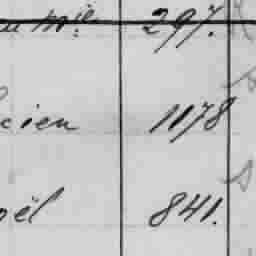 au Mle. 297.
cien 1178
oël 841.